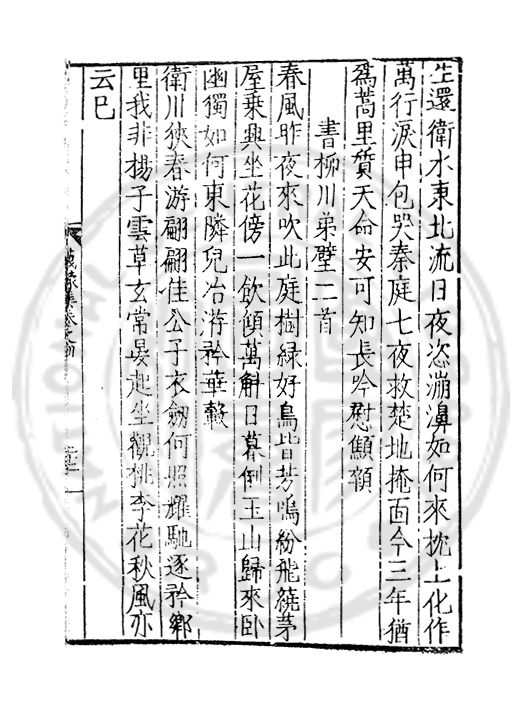 生還衛水東北流日夜恣漰濞如何來枕上化作
萬行淚申包哭秦庭七夜救楚地掩面今三年猶
為蒿里質天命安可知長吟慰顦顇
書柳川弟壁二首
春風昨夜來吹此庭樹緑好鳥皆芳鳴紛飛繞茅
屋乗興坐花傍一飲傾萬斛日暮倒玉山歸來卧
幽獨如何東隣兒冶游矜華轂
衛川狹春游翩翩佳公子衣劒何照耀馳逐矜鄉
里我非揚子雲草玄常晏起坐觀桃李花秋風亦
云已